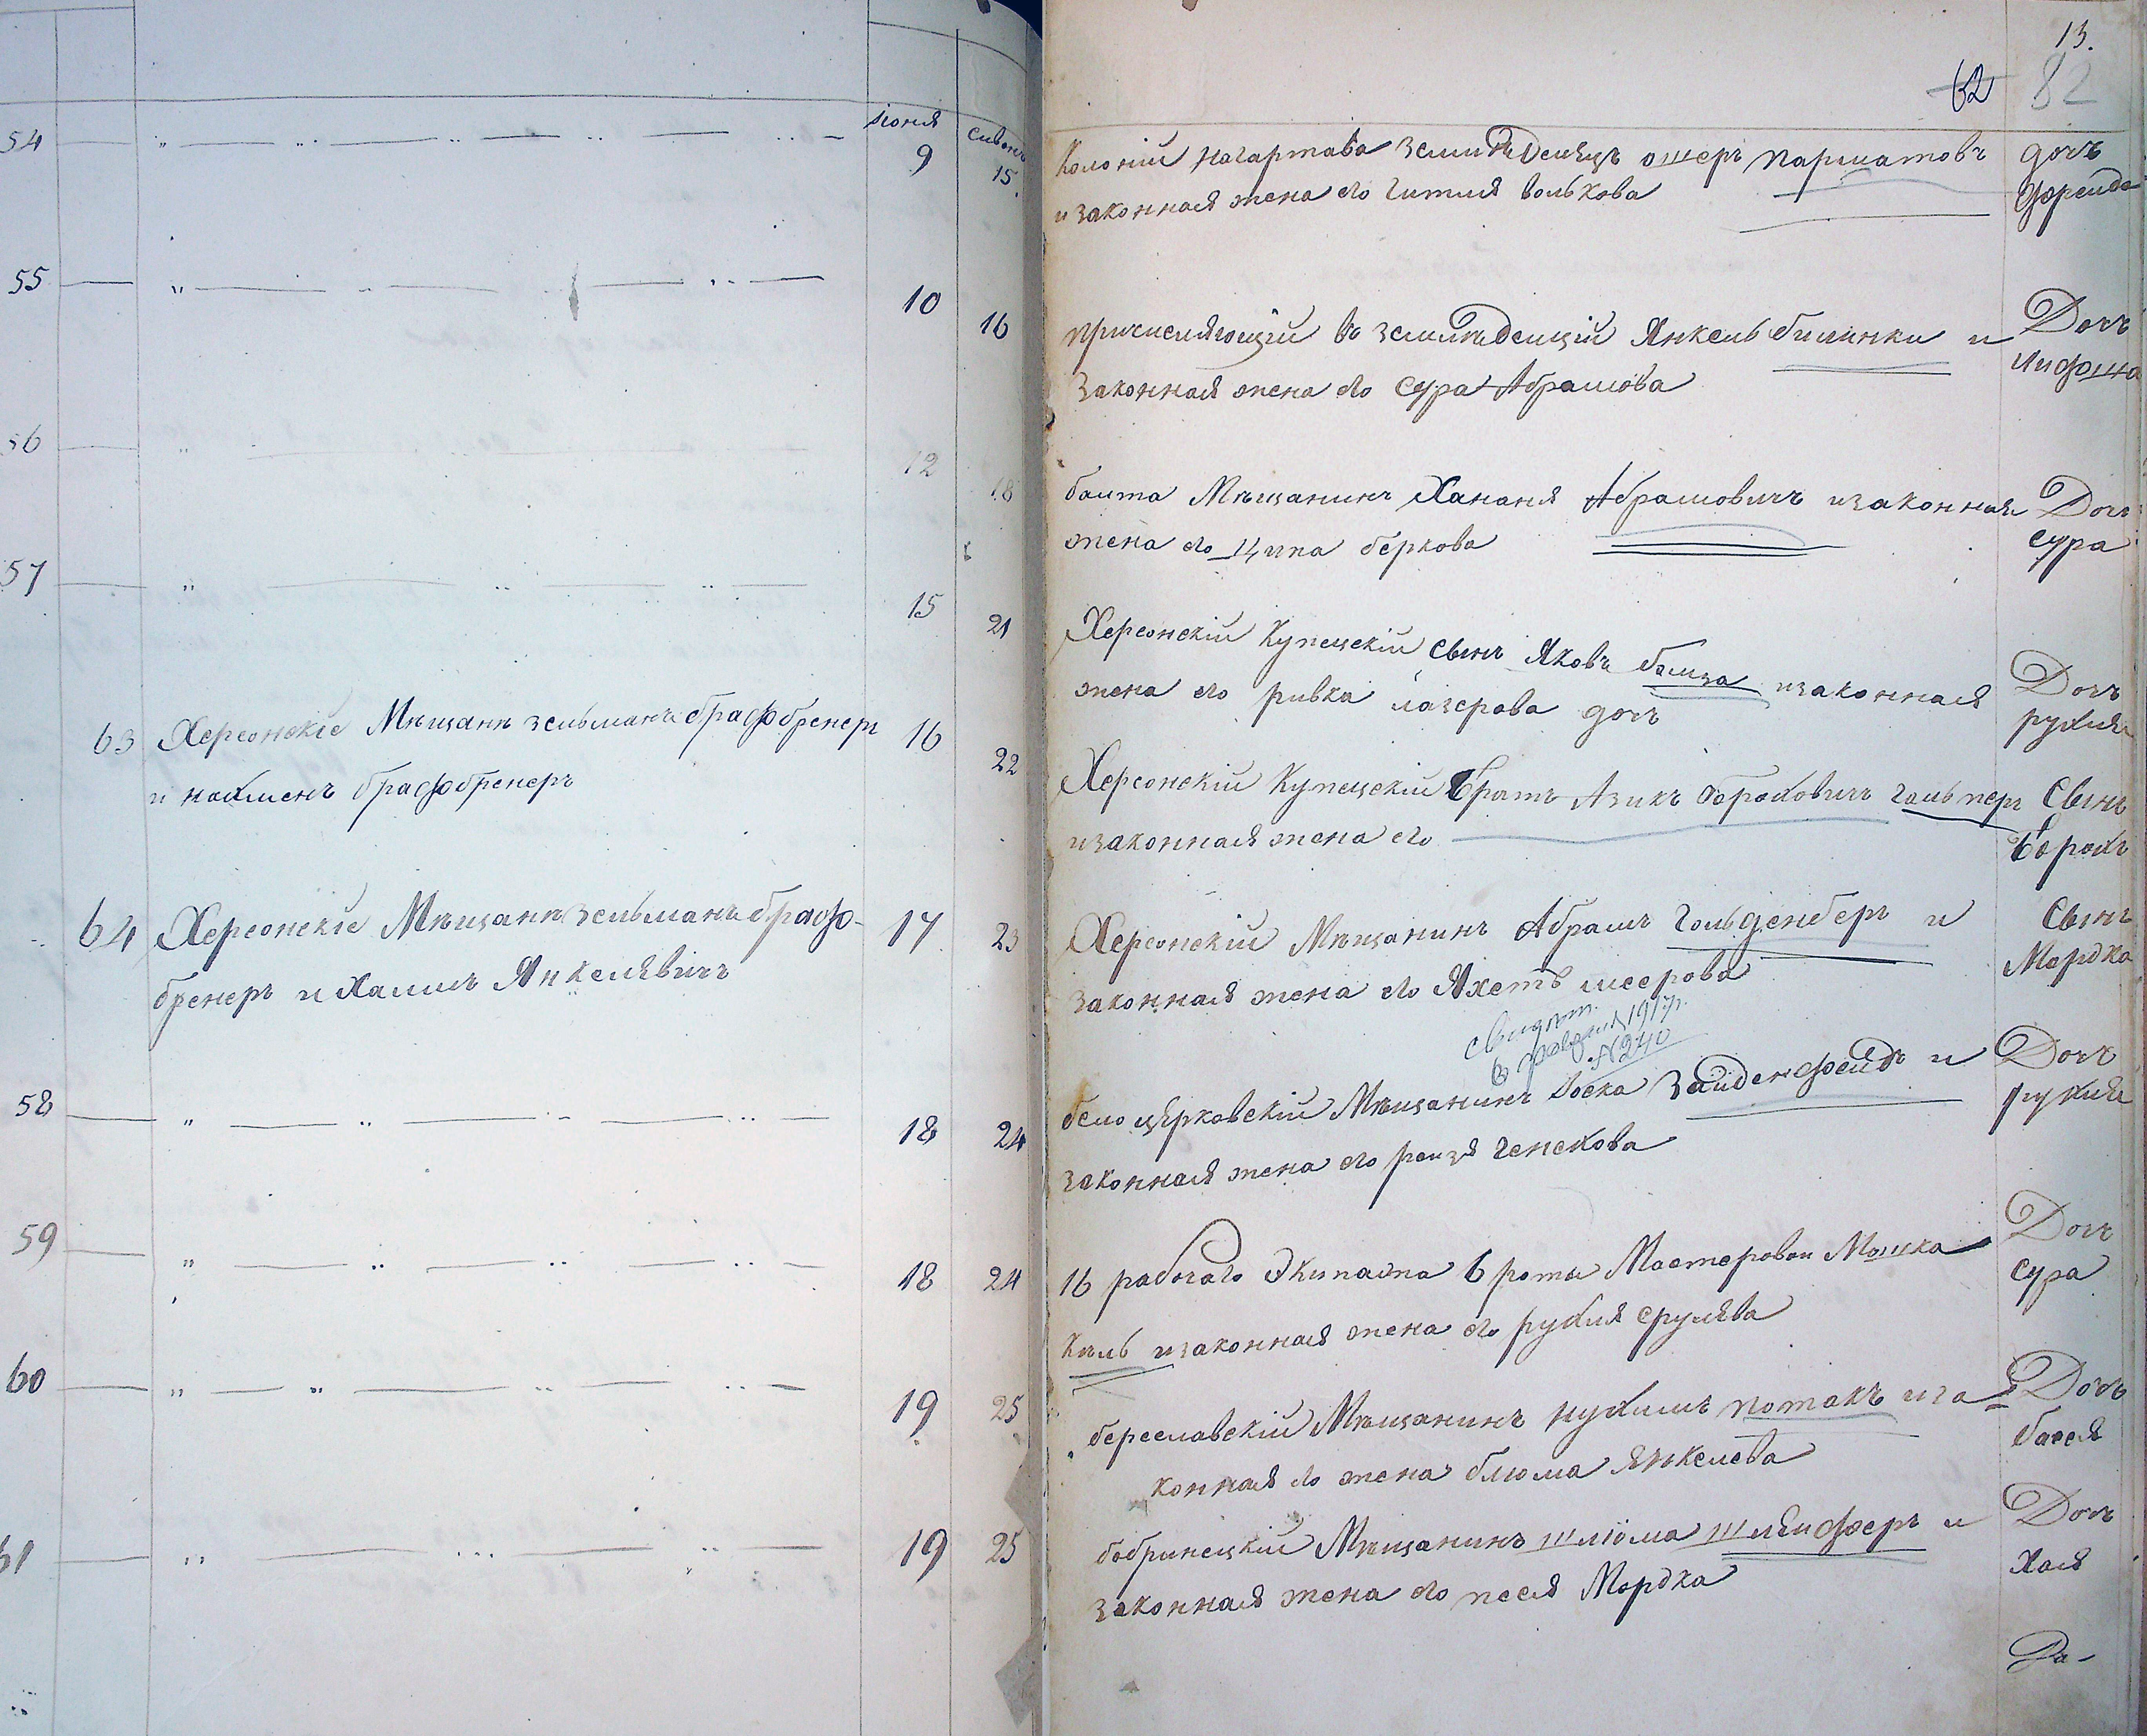 13.
62 82
Іюня Сивонъ
54 9 15.
Колоніи Нагартава Земледелецъ ошеръ Паршатовъ
и законная жена его Гитля Волькова
дочь
Фрейда
55 10 16
причисляющій въ земледельцы Янкель билинки и
Законная жена его Сура Абрамова
Дочь
56 12 18
Балта Мѣщанинъ Хананя Абрамовичъ и законная
жена его Ципа беркова
Дочь
Сура
57 15 21
Херсонскій Купецкій Сынъ Яковъ и законная
жена его ривка лазерова дочь
Дочь
рухля
63 Херсонскіе Мѣщане зельманъ графбренеръ 16 22
и нахменъ графбренеръ
Херсонскій Купецкій Братъ Азикъ Борохович Гальперъ
и законная жена его
Сынъ
Борохъ
64 Херсонскіе Мѣщане зельманъ граф- 17 23
бренеръ и Хаимъ Янкелевичъ
Херсонскій Мѣщанинъ Абрамъ Гольденберъ и
Законная жена его Яхетъ меерова
Сынъ
Мордко
свидѣт.
1917г.
№240
58 18 24
белоцерковскій Мѣщанинъ Іоска Зайденфелдъ и
законная жена его рейзя Генехова
Дочь
рухля
59 18 24
16 рабочаго Экипажа 6 роты Мастеровой Мошка
Киль и законная жена его рухля срулева
Дочь
Сура
60 19 25
береславскій Мѣщанинъ нухимъ потакъ и за=
конная его жена блюма Янкелева
Дочь
бася
61 19 25
бобринецкій Мѣщанинъ шліома шлейферъ и
законная жена его песя Мордко
Дочь
Хая